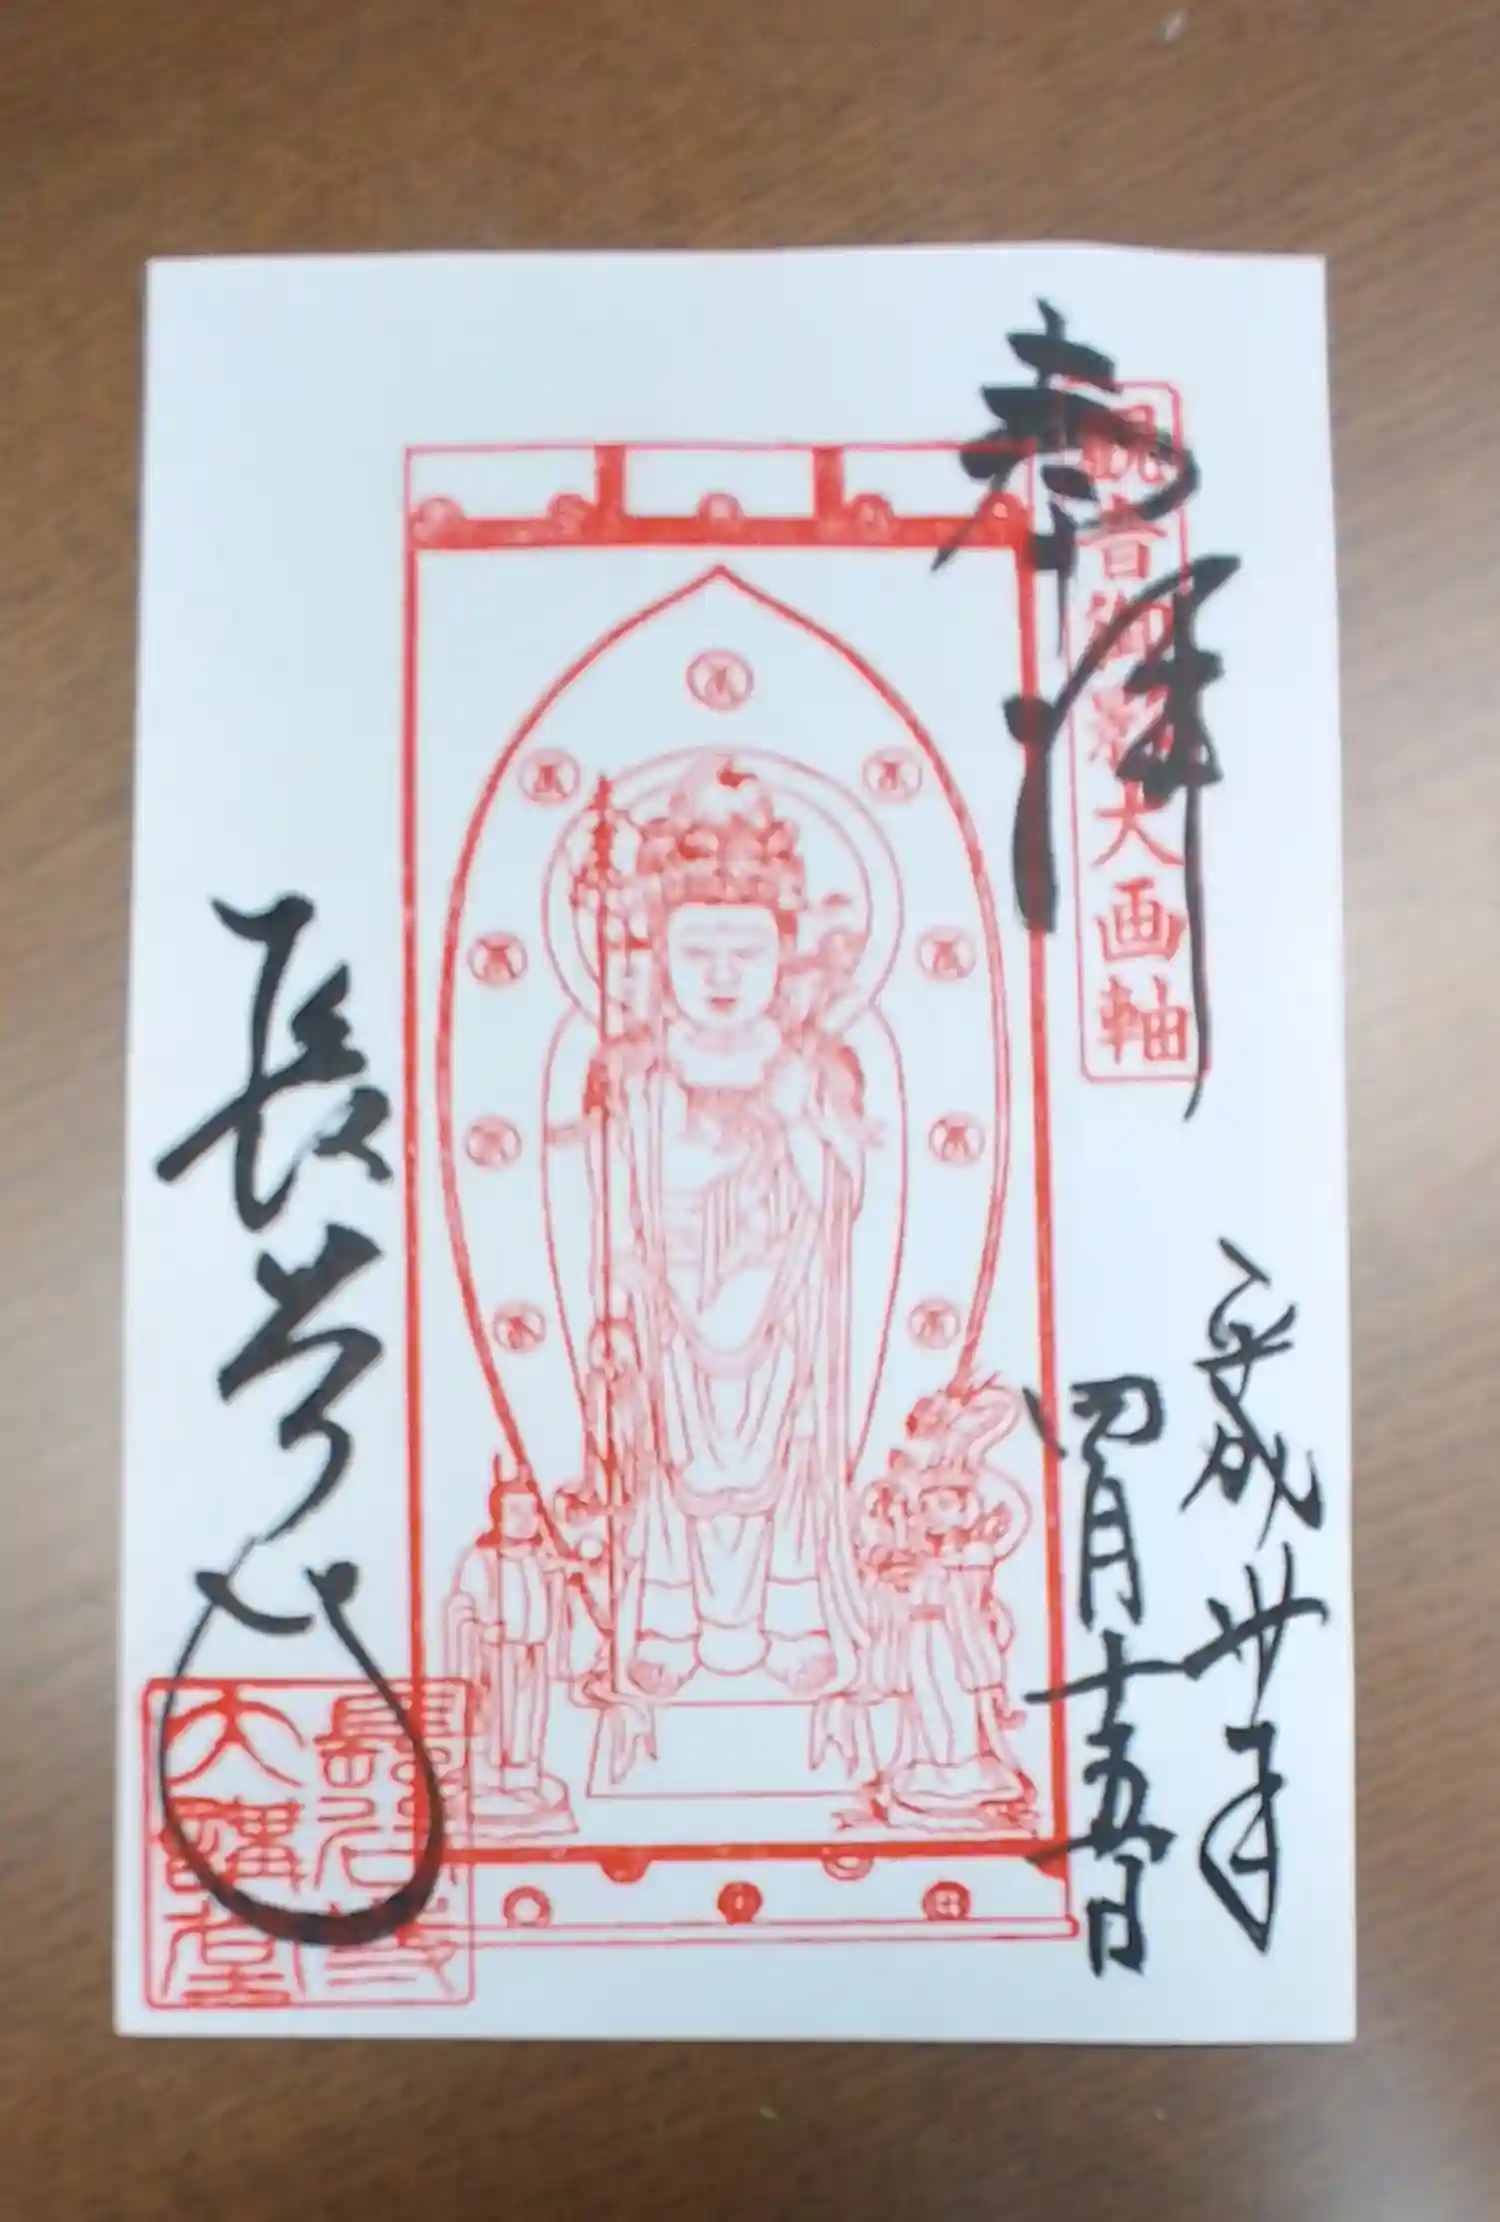 奉拝
観音御影大画軸
平成卅年
四月十五日
長谷寺
長谷寺
大講堂